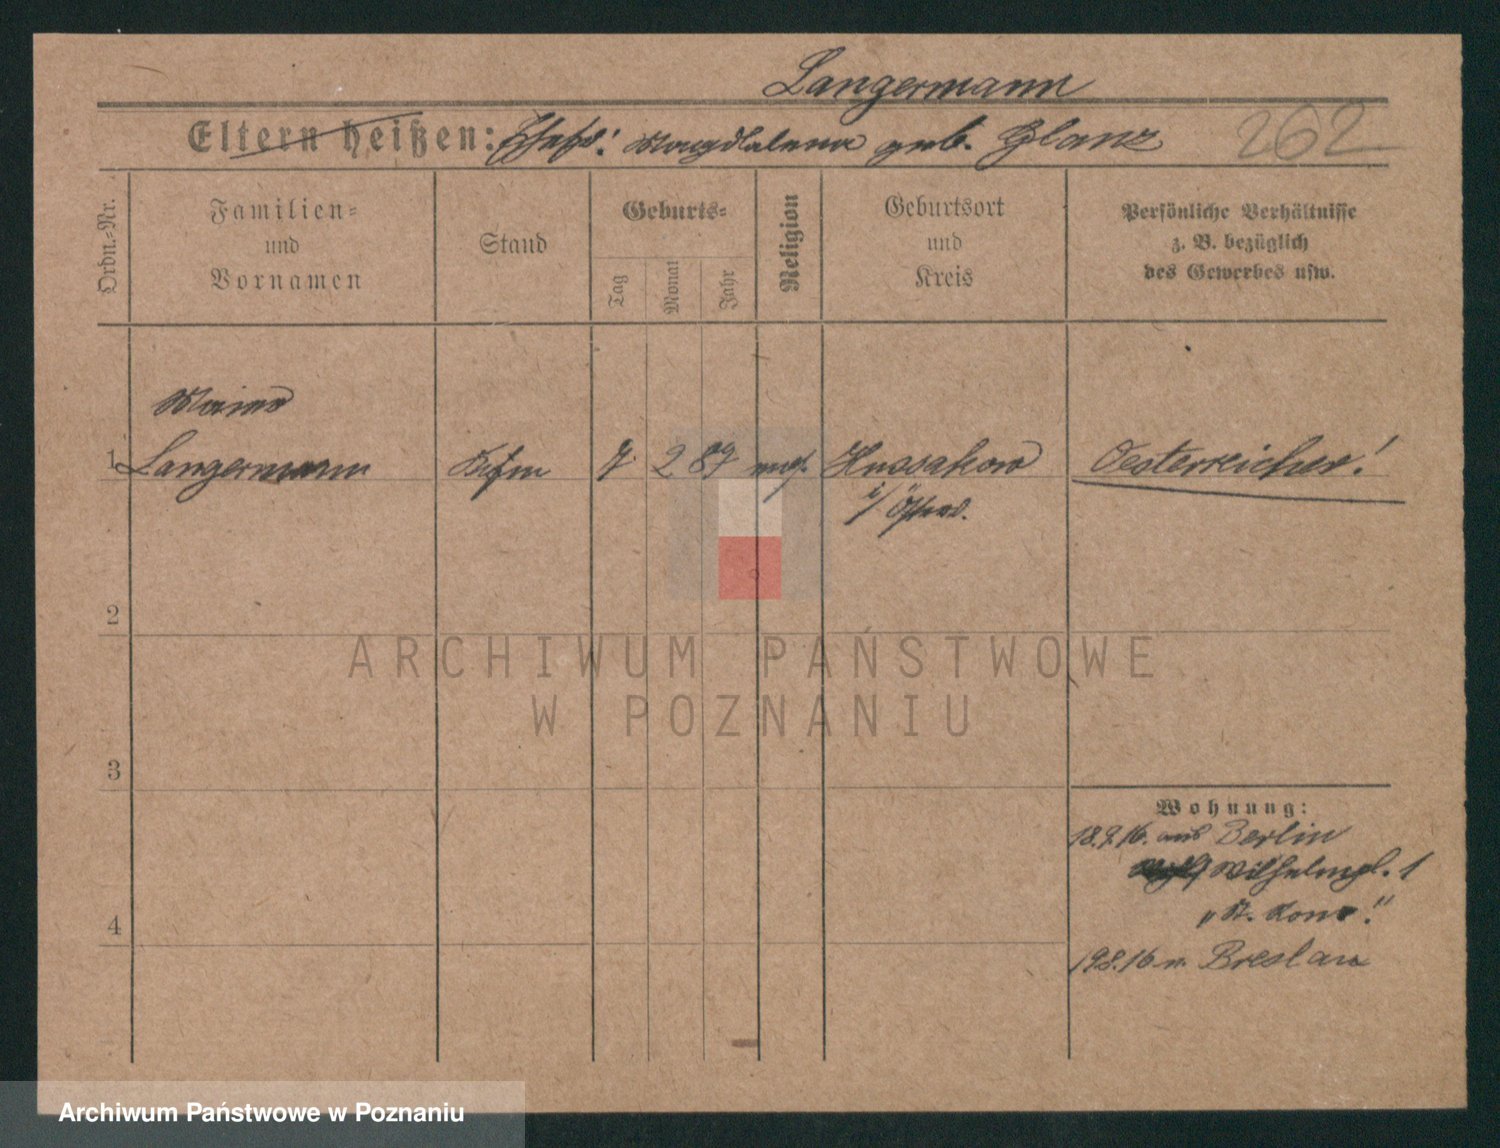 Langermann
Eltern heißen: Ehefr.: Magdalena geb. Glanz
262
Ordn.-Nr.
Familien-
und
Vornamen
Stand
Geburts-
Tag
Monat
Jahr
Religion
Geburtsort
und
Kreis
Persönliche Verhältnisse
z. B. bezüglich
des Gewerbes usw.
1 Langermann Kufm 7. 2 87 Hussakow Oesterreicher!
i/Österr.
2
3
4
Wohnung:
aus Berlin
Wilhelmpl. 1
19.8.16 n. Breslau
ARCHIWUM PAŃSTWOWE
W POZNANIU
Archiwum Państwowe w Poznaniu